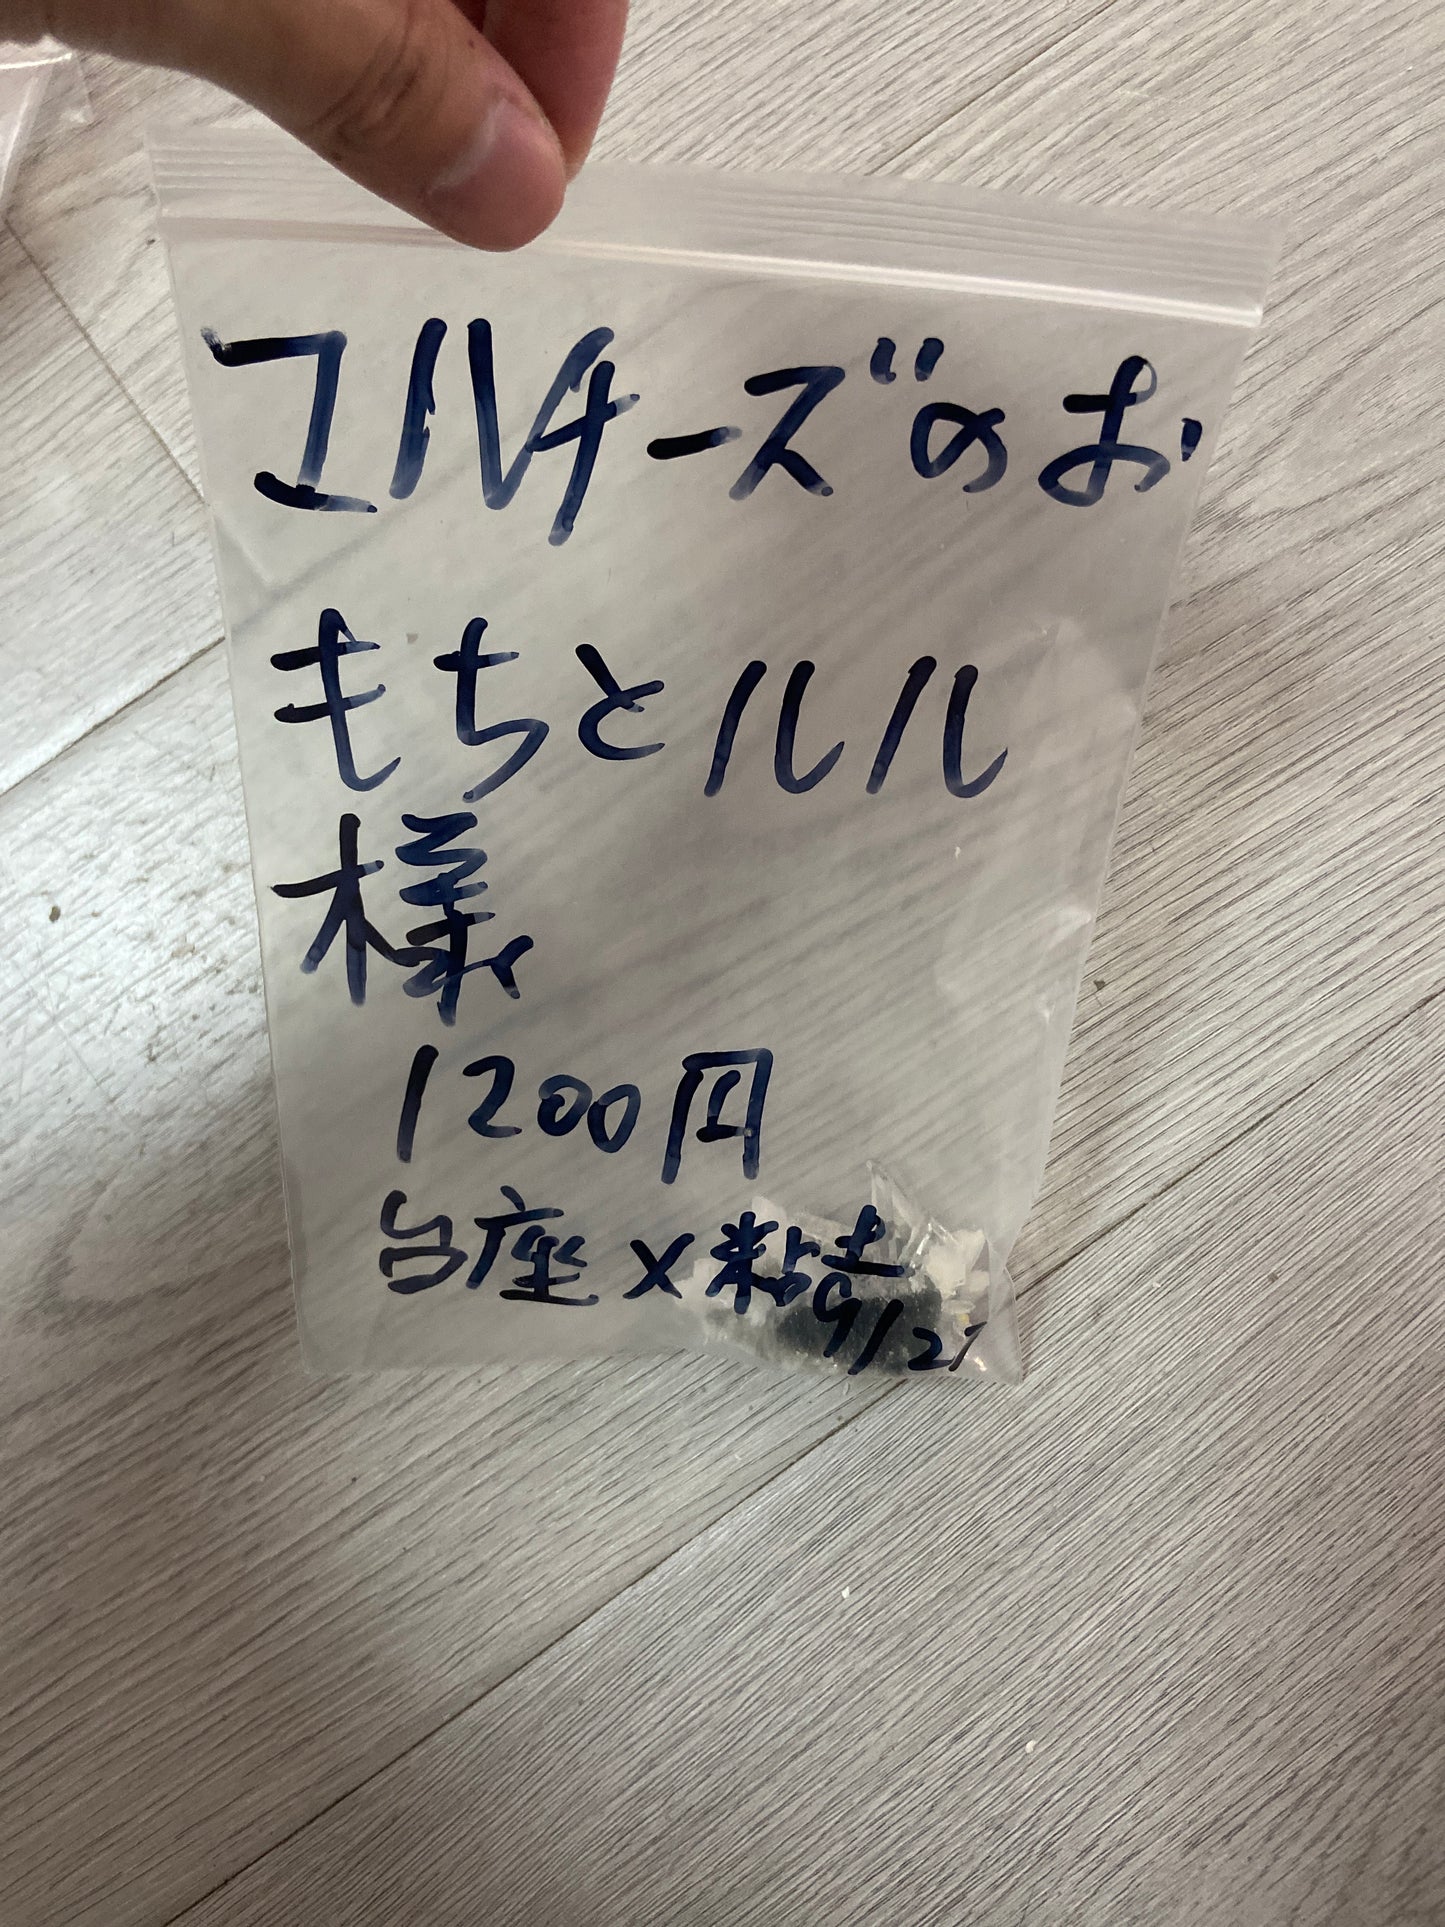 マルチーズのお
もちとルル
様
1200円
台座×粘土
9/27